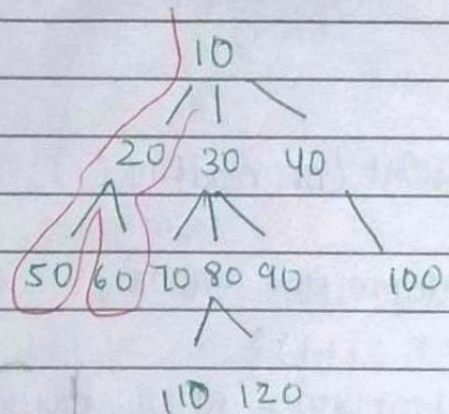 10
20 30 40
50 60 70 80 90 100
110 120